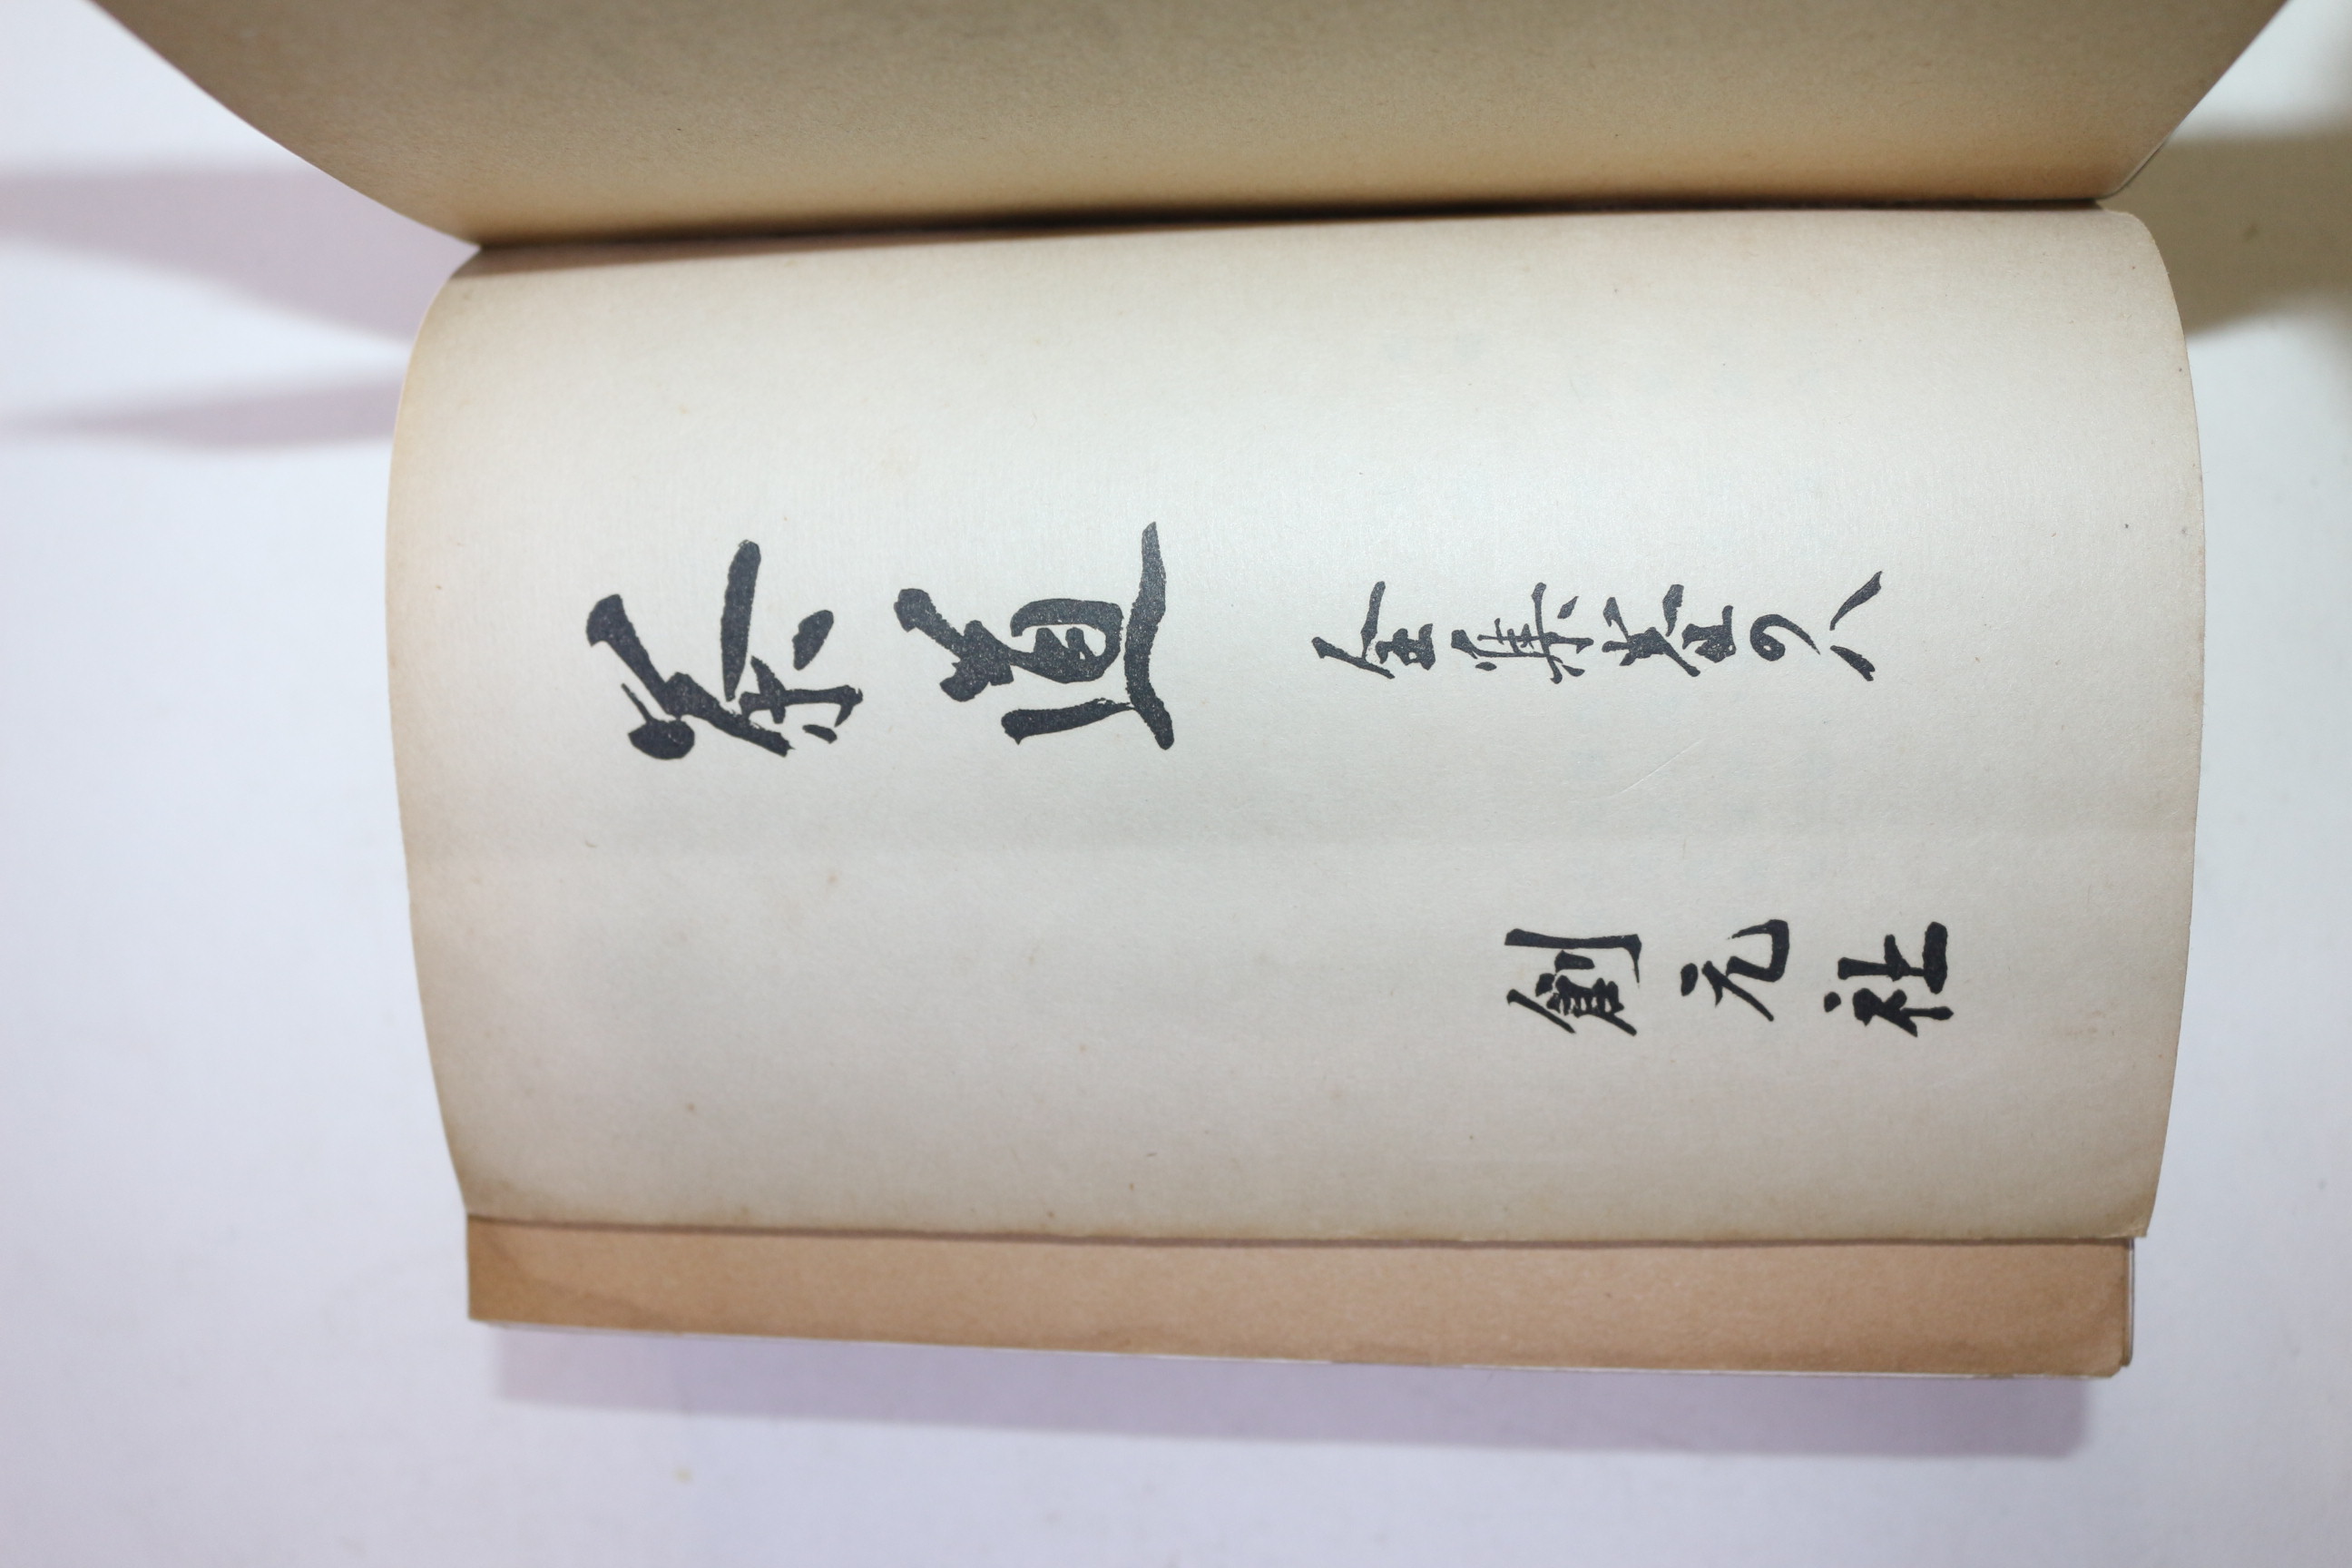 茶道
全集 巻の八
創元社